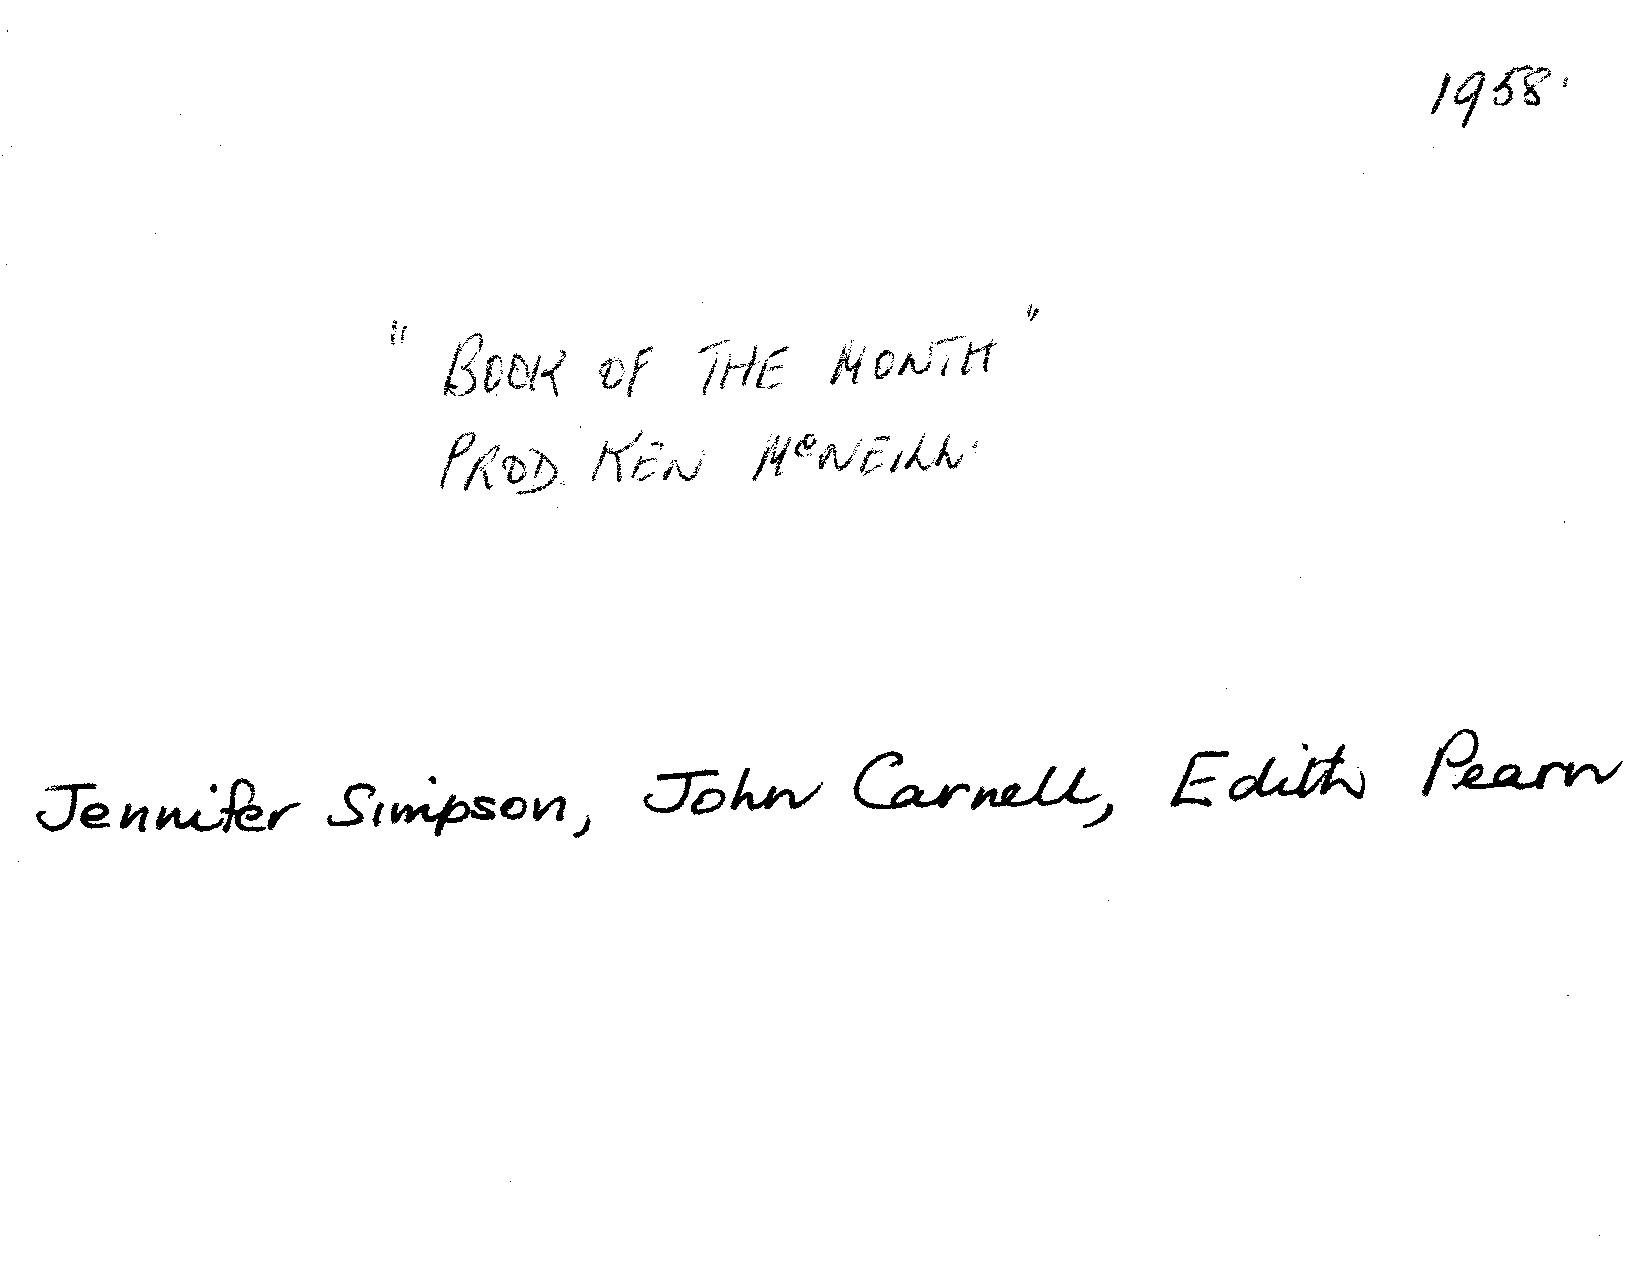 1958.
"BOOK OF THE MONTH"
PROD. KEN McNEILL.
Jennifer Simpson, John Carnell, Edith Pearn